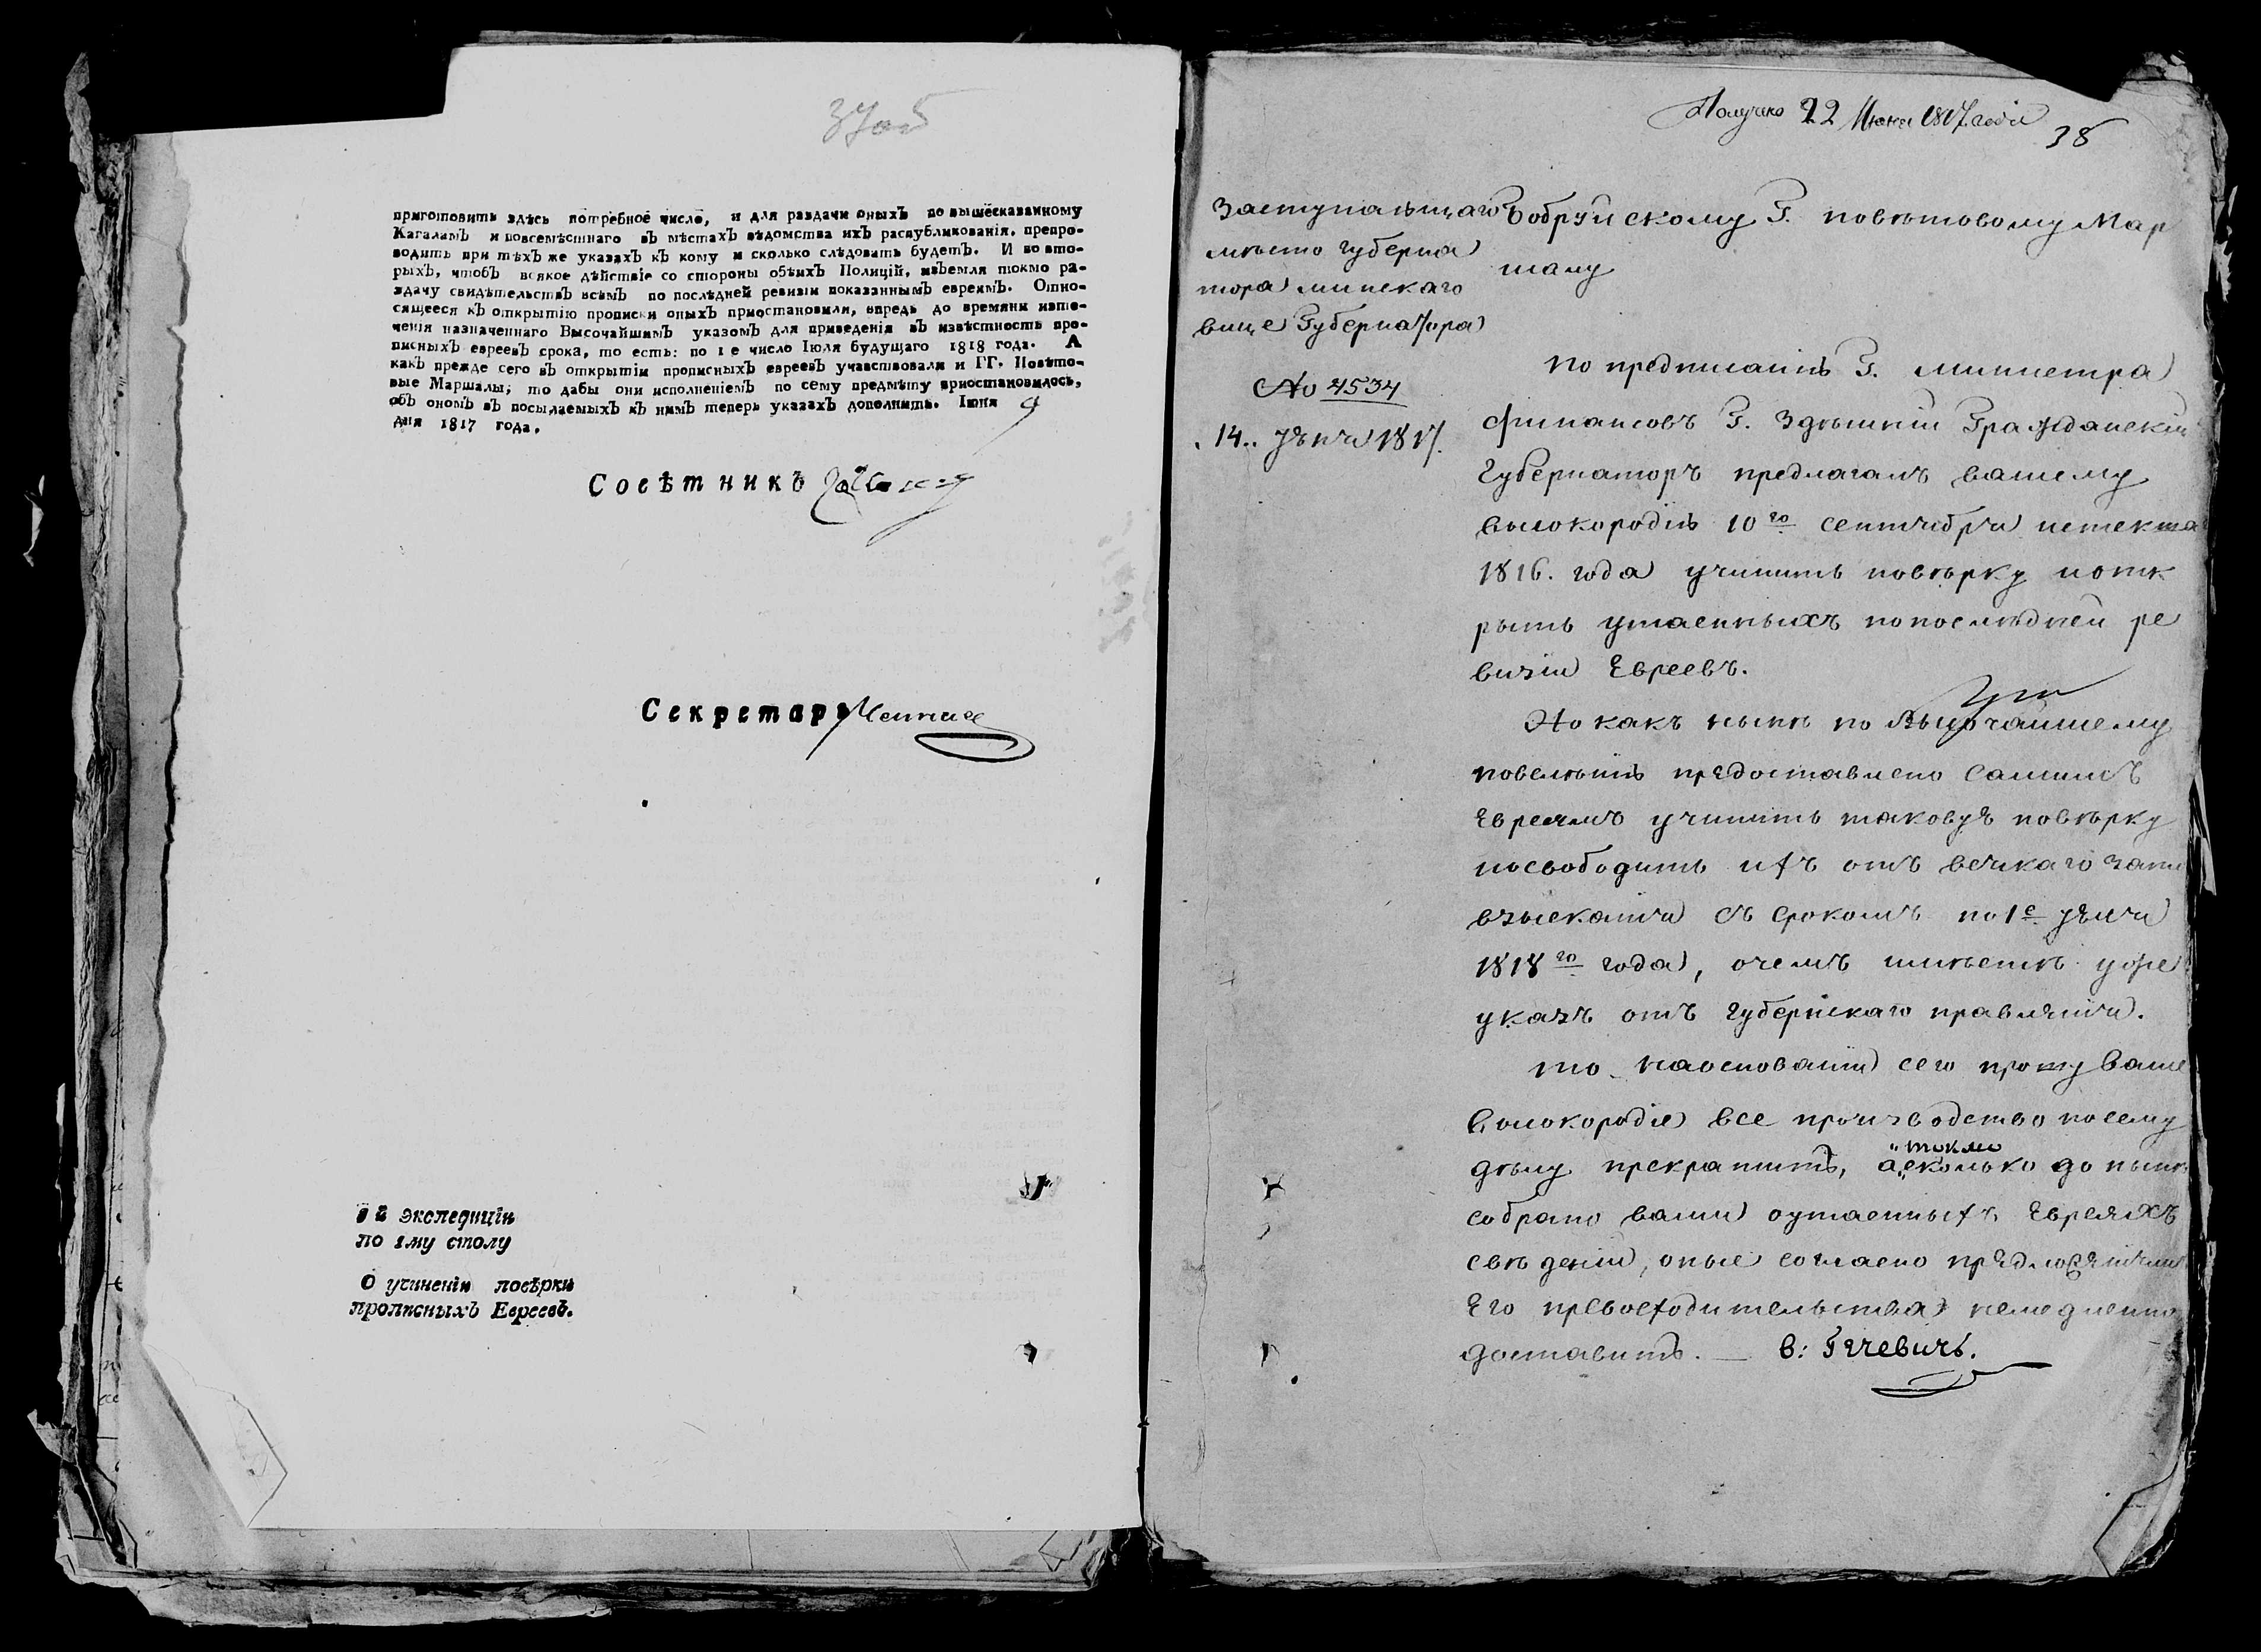 37об
приготовить здѣсь потребное число, и для раздачи оныхЪ по вышесказанному
КагаламЪ и повсемѣстнаго вЪ мѣстахЪ вѣдомства ихЪ распубликованія, препро-
водить при тѣхЪ же указахЪ кЪ кому и сколько слѣдовать будетЪ. И во вто-
рыхЪ, чтобЪ всякое дѣйствіе со стороны обѣихЪ Полицій, изЪемля токмо ра-
здачу свидѣтельствЪ всѣмЪ по послѣдней ревизіи показаннымЪ евреямЪ. Отно-
сящееся кЪ открытію прописки оныхЪ приостановили, впредь до времяни исте-
ченія назначеннаго ВысочайшимЪ указомЪ для приведенія вЪ извѣстность про-
писныхЪ евреевЪ срока, то есть: по 1 е число Іюля будущаго 1818 года. А
какЪ прежде сего вЪ открытіи прописныхЪ евреевЪ учавствовали и ГГ. Повѣто-
вые Маршалы; то дабы они исполненіемЪ по сему предмѣту приостановилось,
обЪ ономЪ вЪ посылаемыхЪ кЪ нимЪ теперь указахЪ дополнить. Іюня 9
дня 1817 года.
СовѣтникЪ
Секретарь
й Экспедиціи
по 1му столу
О учиненіи повѣрки
прописныхЪ Евреевъ.
Получено 22 Июня 1817 года
38
Заступающаго
мѣсто Губерна
тора минскаго
вице Губернатора
No 4534
14. Іюня 1817.
Бобруйскому Г. повѣтовому Мар
шалу
По предписанію Г. министра
финансовъ Г. Здѣшній Гражданскій
Губернаторъ предлагалъ вашему
высокородію 10го сентября истекша
1816. года учинить повѣрку и отк
рыть утаенныхъ по послѣдней ре
визіи Евреевъ.
Но какъ нынѣ по Высочайшему
повелѣнію предоставлено самимъ
Евреямъ учинить таковую повѣрку
и освободить ихъ отъ всякаго зато
взысканія съ срокомъ по 1е Іюля
1818го года, о чемъ имѣете уже
указъ отъ Губернскаго правленія.
то на основаніи сего прошу ваше
высокородіе все производство по сему
дѣлу прекратить, а сколько до нынѣ
токмо
собрано вами о утаенныхъ Евреяхъ
свѣденій, оные согласно предложеніямъ
Его превосходительства немедленно
доставить. — В: Гечевичь.